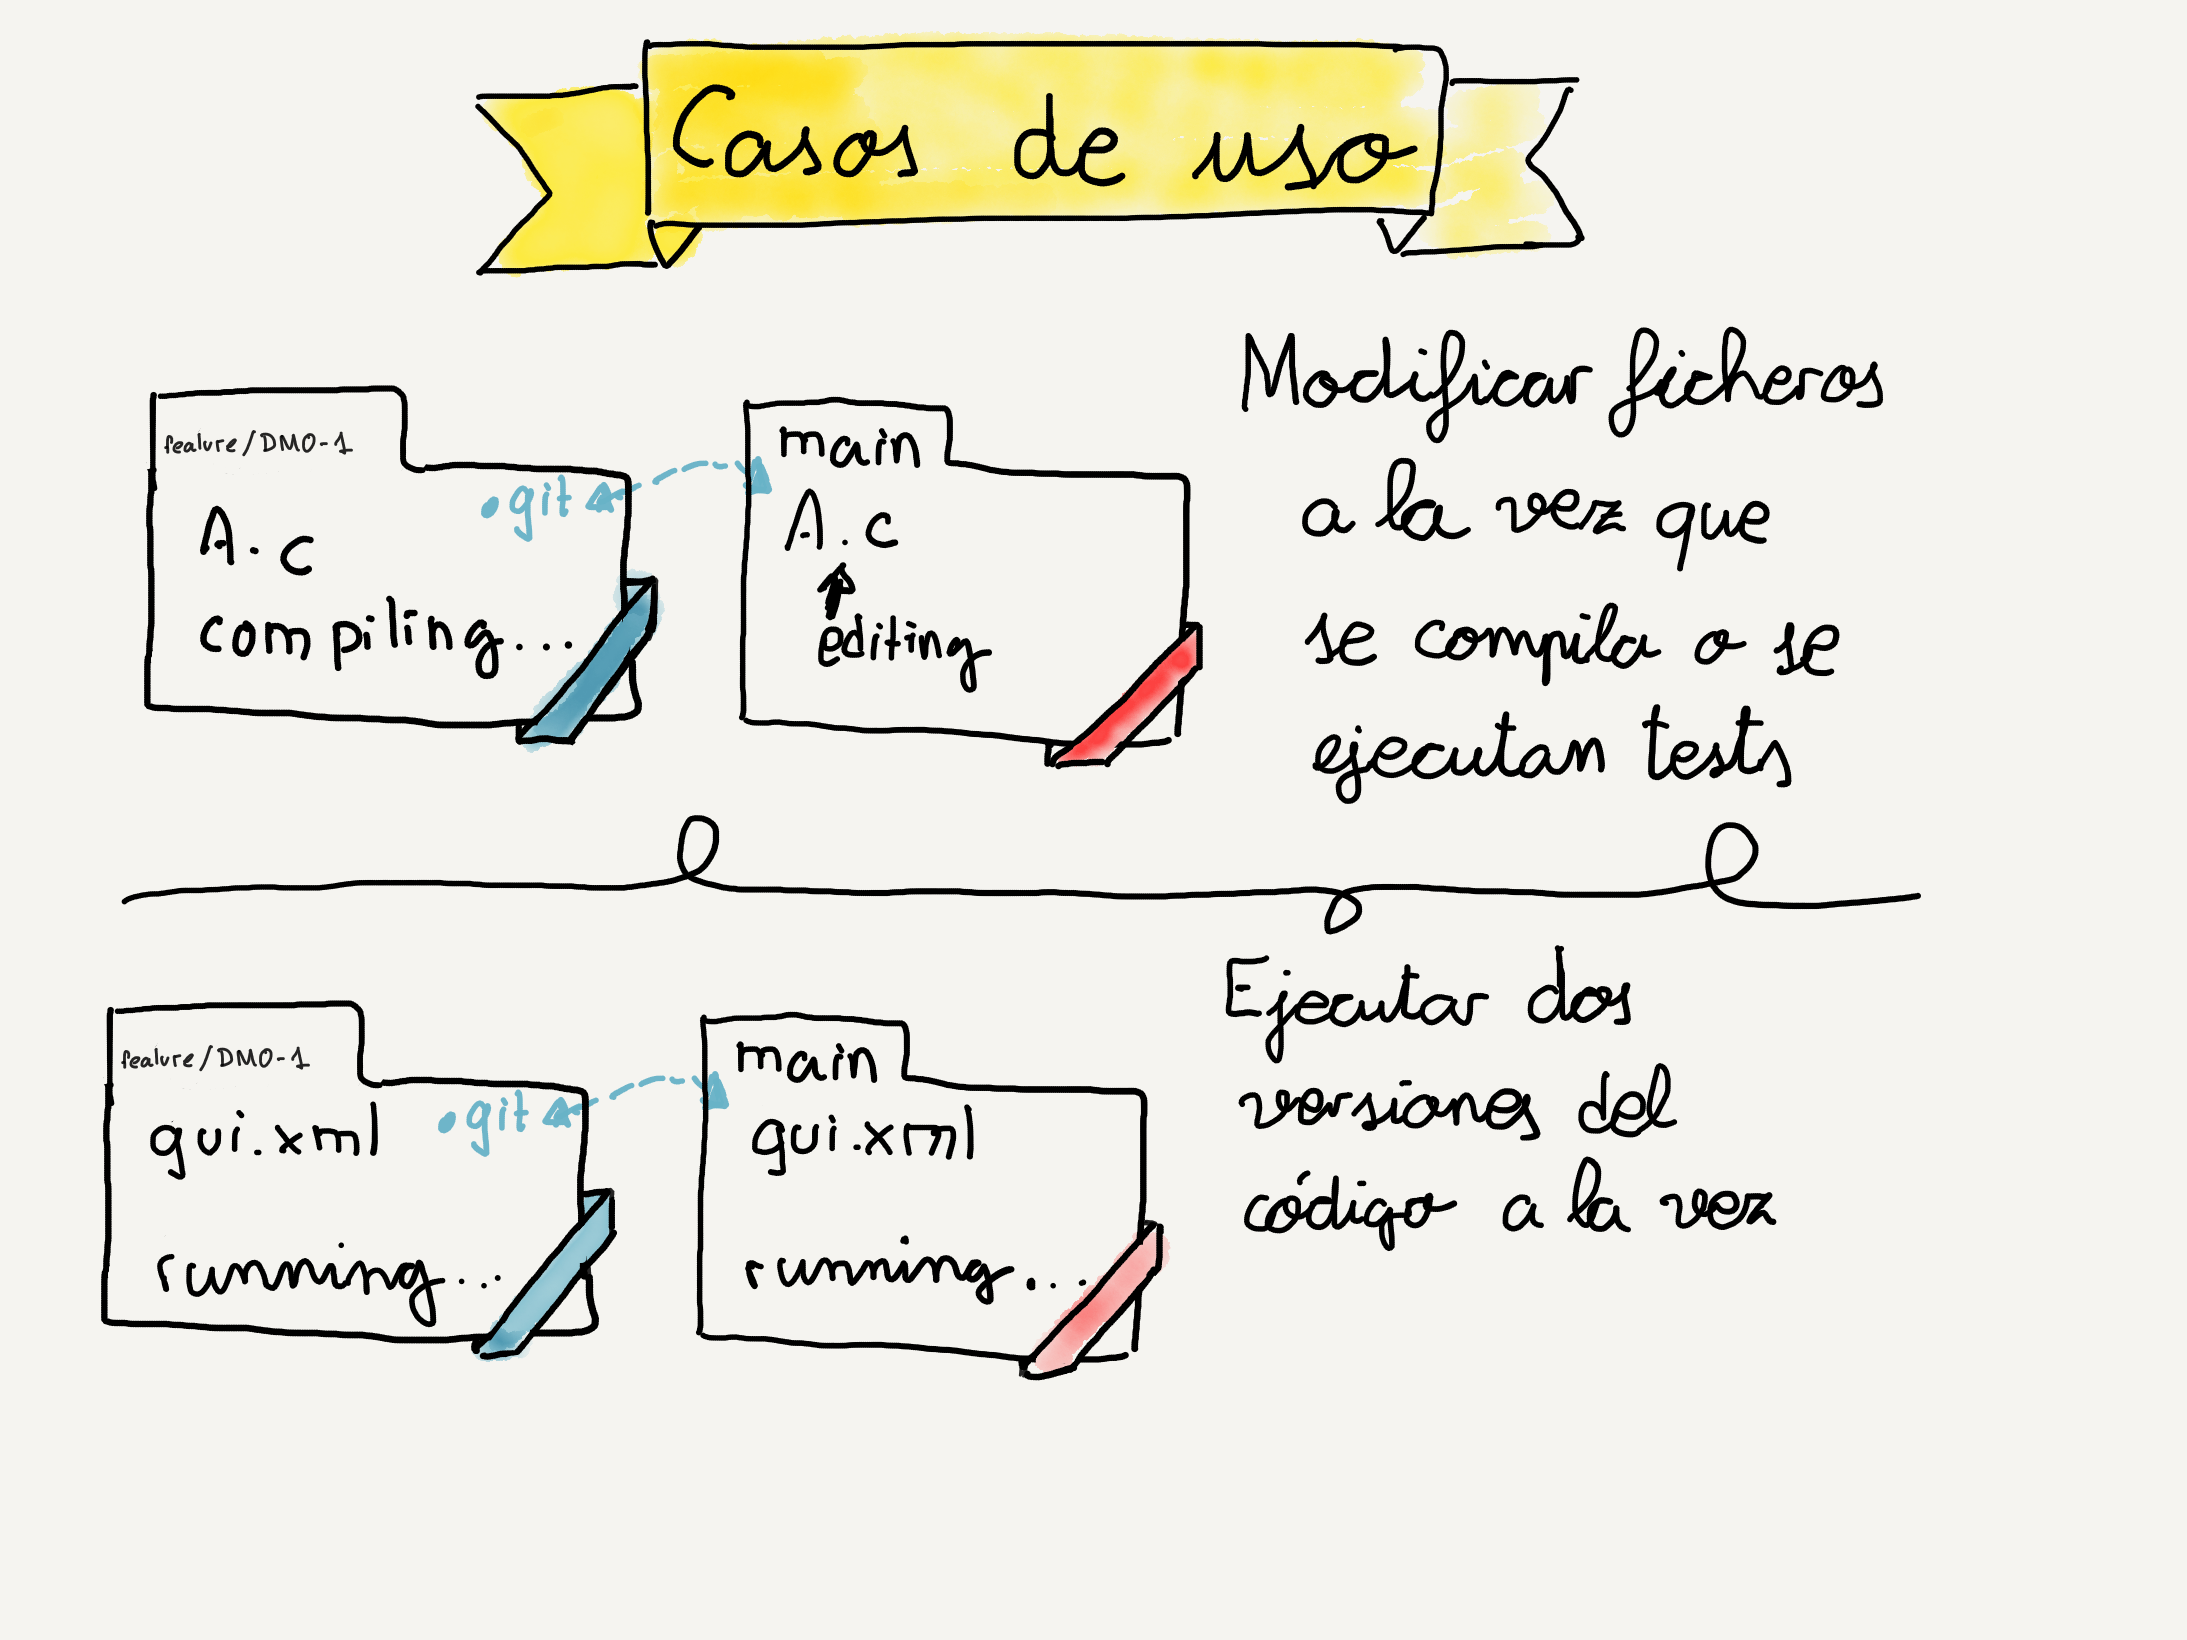 Casos de uso
feature/DMO-1
.git
A.c
compiling...
main
A.c
editing
Modificar ficheros
a la vez que
se compila o se
ejecutan tests
feature/DMO-1
.git
gui.xml
running...
main
gui.xml
running...
Ejecutar dos
versiones del
código a la vez